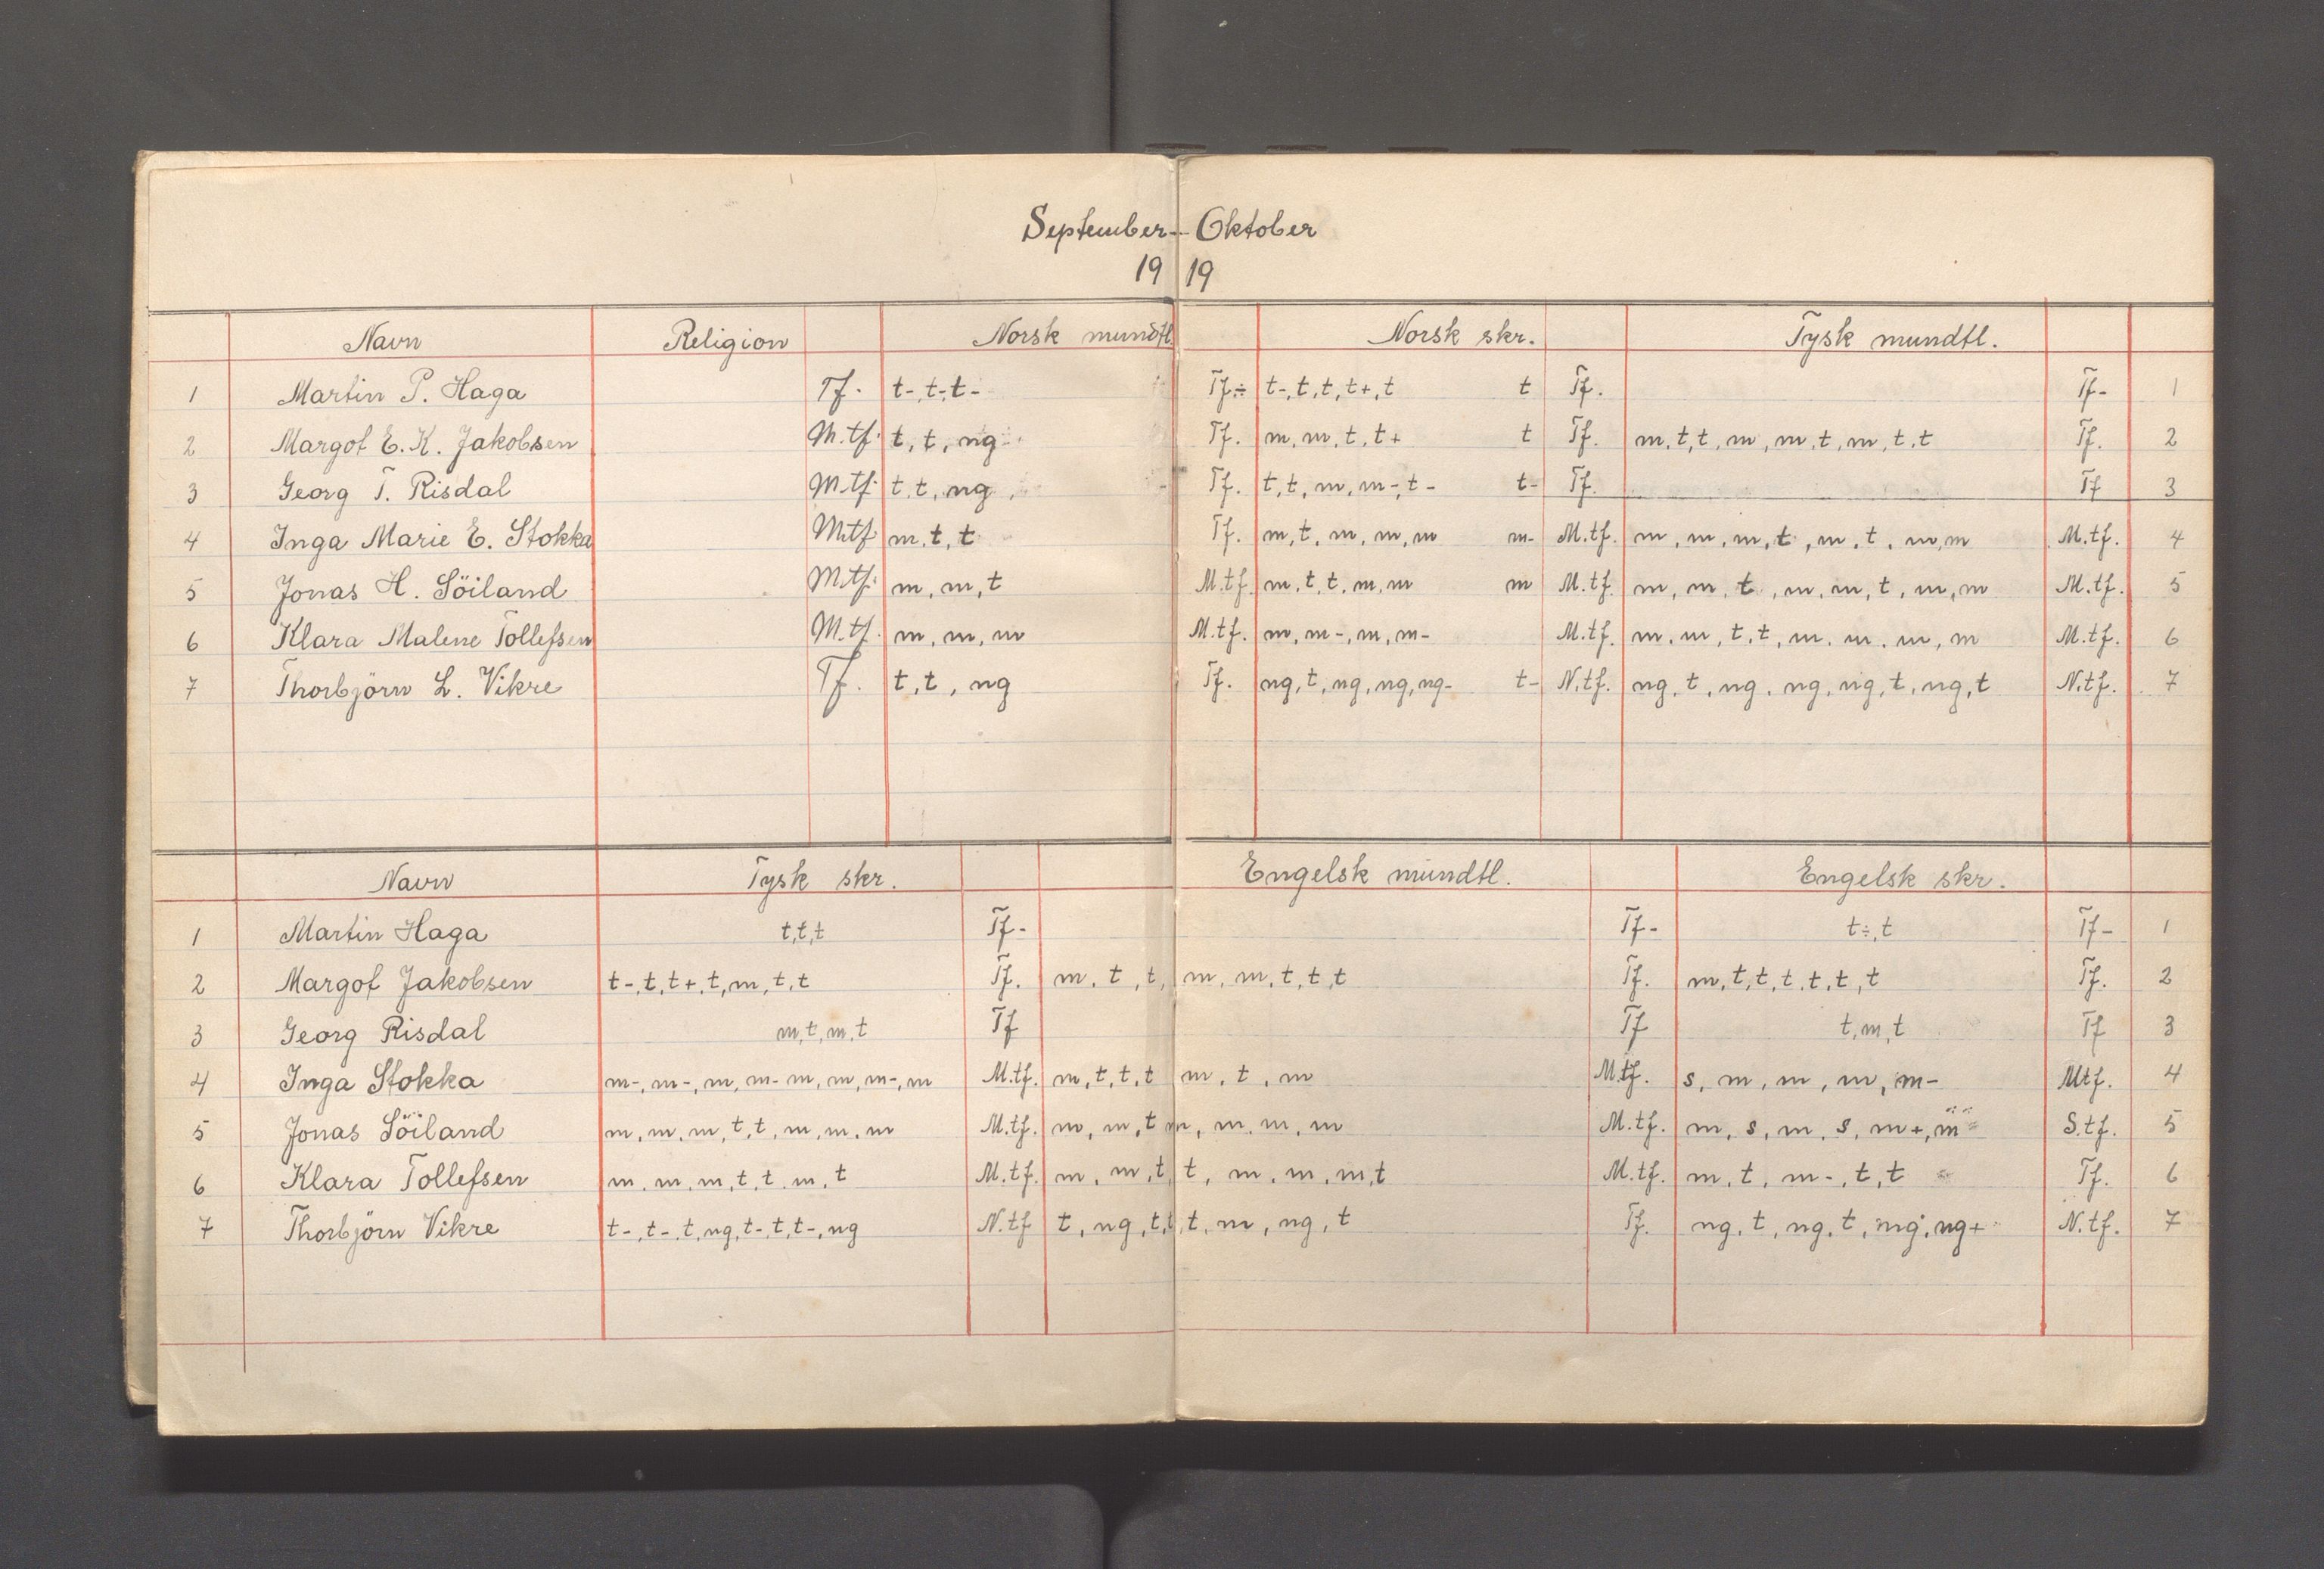 September - Oktober
19 19
Navn Religion Norsk mundtl. Norsk skr. Tysk mundtl.
1 Martin P. Haga Tf. t-, t-, t- Tf.÷ t-, t, t, t+, t t Tf. Tf- 1
2 Margot E. K. Jakobsen M.tf. t, t, ng Tf. m, m, t, t+ t Tf. m, t, t, m, m, t, m, t, t Tf. 2
3 Georg T. Risdal M.tf. t, t, ng Tf. t, t, m, m-, t- t- Tf. Tf 3
4 Inga Marie E. Stokka M.tf m, t, t Tf. m, t, m, m, m m- M.tf. m, m, m, t, m, t, m, m M.tf. 4
5 Jonas H. Söiland M.tf. m, m, t M.tf. m, t, t, m, m m M.tf. m, m, t, m, m, t, m, m M.tf. 5
6 Klara Malene Tollefsen M.tf. m, m, m M.tf. m, m-, m, m- M.tf. m, m, t, t, m, m, m, m M.tf. 6
7 Thorbjörn L. Vikre Tf. t, t, ng Tf. ng, t, ng, ng, ng- t- N.tf. ng, t, ng, ng, ng, t, ng, t N.tf. 7
Navn Tysk skr. Engelsk mundtl. Engelsk skr.
1 Martin Haga t, t, t Tf- Tf- t÷, t Tf- 1
2 Margot Jakobsen t-, t, t+, t, m, t, t Tf. m, t, t, m, m, t, t, t Tf. m, t, t, t, t, t, t Tf. 2
3 Georg Risdal m, t, m, t Tf Tf t, m, t Tf 3
4 Inga Stokka m-, m-, m, m- m, m, m-, m M.tf. m, t, t, t m, t, m M.tf. s, m, m, m, m- Mtf. 4
5 Jonas Söiland m, m, m, t, t, m, m, m M.tf. m, m, t m, m, m, m M.tf. m, s, m, s, m+, m S.tf. 5
6 Klara Tollefsen m, m, m, t, t, m, t M.tf. m, m, t, t, m, m, m, t M.tf. m, t, m-, t, t Tf. 6
7 Thorbjörn Vikre t-, t-, t, ng, t-, t, t-, ng N.tf t, ng, t, t, t, m, ng, t Tf. ng, t, ng, t, mg, ng+ N.tf. 7